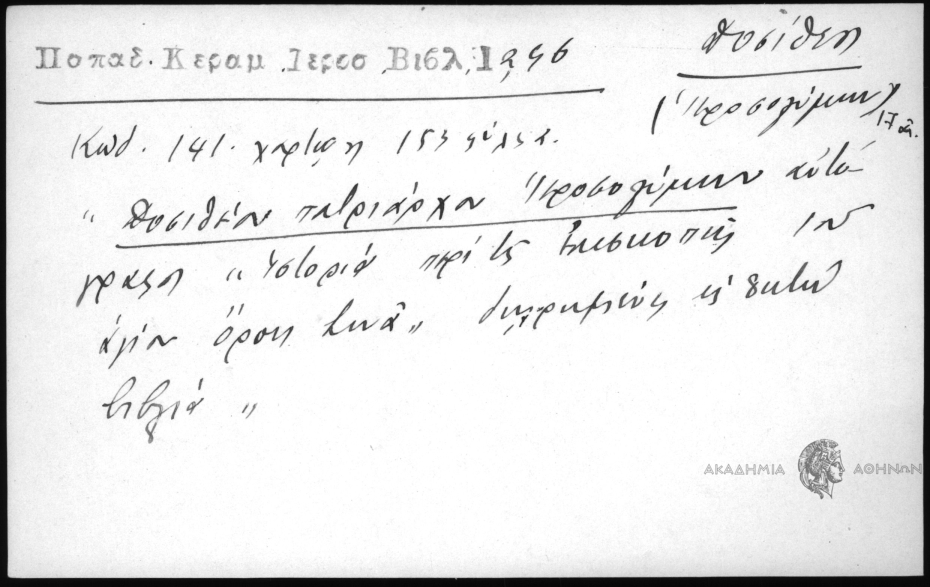 Παπαδ. Κεραμ Ιεροσ Βιβλ, 1, 246
Δοσίθεος
(Ἱεροσολύμων)
17 αἰ.
Κωδ. 141. χαρτῷος 1535 φύλλα.
" Δοσιθέου πατριάρχου Ἱεροσολύμων αὐτό-
γραφος " ἱστορία περὶ τῆς Ἐπισκοπῆς τοῦ
ἁγίου ὄρους Σινᾶ " διῃρημένη εἰς ὀκτὼ
βιβλία "
ΑΚΑΔΗΜΙΑ ΑΘΗΝΩΝ